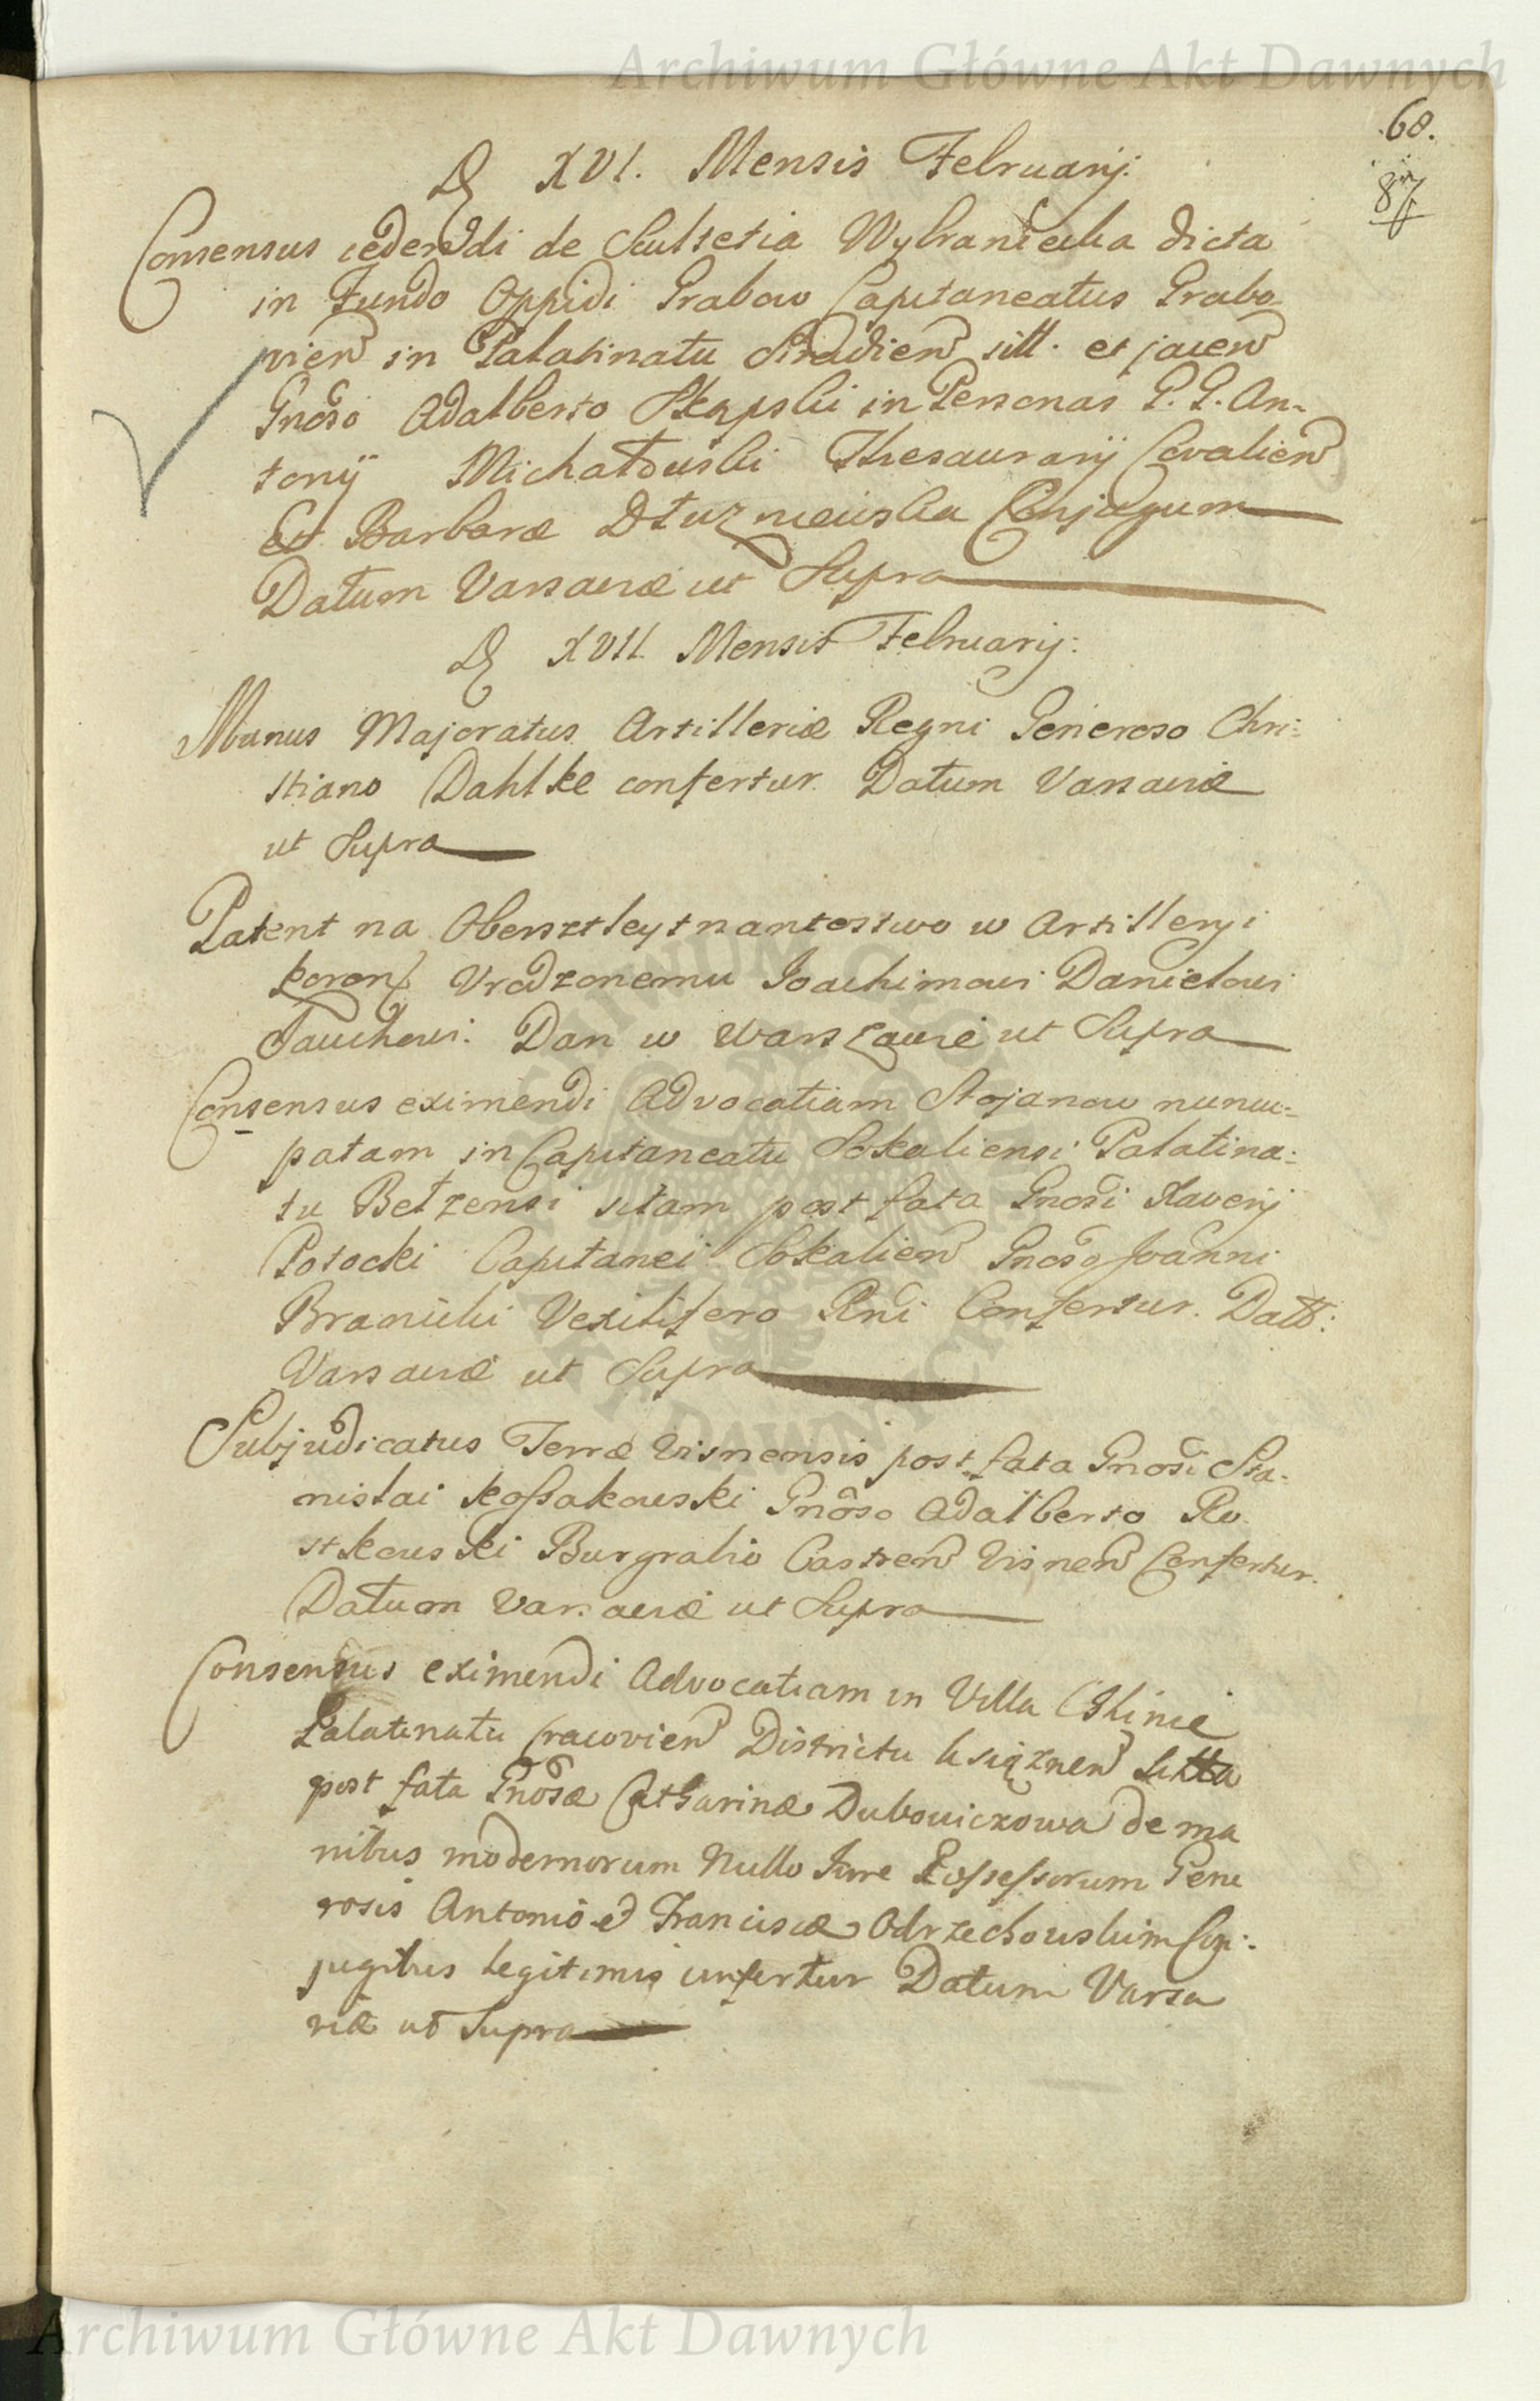 Archiwum Główne Akt Dawnych
68.
87
D XVI. Mensis Februarij.
Consensus cedendi de Scultetia Wybraniecka dicta
in Fundo Oppidi Grabow Capitaneatus Grabo-
vien in Palatinatu Siradien sitt. et jacen
Gnoso Adalberto Skąpski in Personas G. G. An-
tonij Michałowski Thesaurarij Covalien
Et Barbaræ Dłuzniewska Conjugum
Datum Varsaviæ ut Supra
D XVII Mensis Februarij:
Munus Majoratus Artilleriæ Regni Generoso Chri-
stiano Dahlke confertur. Datum Varsaviæ
ut Supra
Patent na Obersztleytnantostwo w Artilleryi
Koron Vrodzonemu Joachimowi Danielowi
Jauchowi. Dan w Warszawie ut Supra
Consensus eximendi Advocatiam Stojanow nuncu-
patam in Capitaneatu Sokaliensi Palatina-
tu Betzensi sitam post fata Gnosi Xaverij
Potocki Capitanei Sokalien Gnoso Joanni
Branicki Vexilifero Rni Confertur. Datt:
Varsaviæ ut Supra
Subjudicatus Terræ Visnensis post fata Gnosi Sta-
nislai Kossakowski Gnoso Adalberto Ro-
stkowski Burgrabio Castren Visnen Confertur.
Datum Varsaviæ ut Supra
Consensus eximendi Advocatiam in Villa
Palatinatu Cracovien Districtu Książnen
post fata Gnosæ Catharinæ Dubowiczowa de ma
nibus modernorum Nullo Jure Possessorum Gene
rosis Antonio et Franciscæ Odrzechowskim Con-
jugibus legitimis confertur Datum Varsa
viæ ut Supra
Archiwum Główne Akt Dawnych